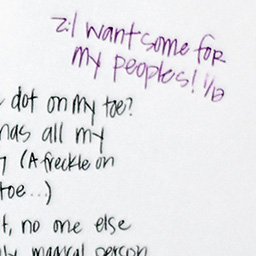 z: I want some for
my peoples! 1/2
dot on my toe?
has all my
(A freckle on
toe...)
t, no one else
lly magical person